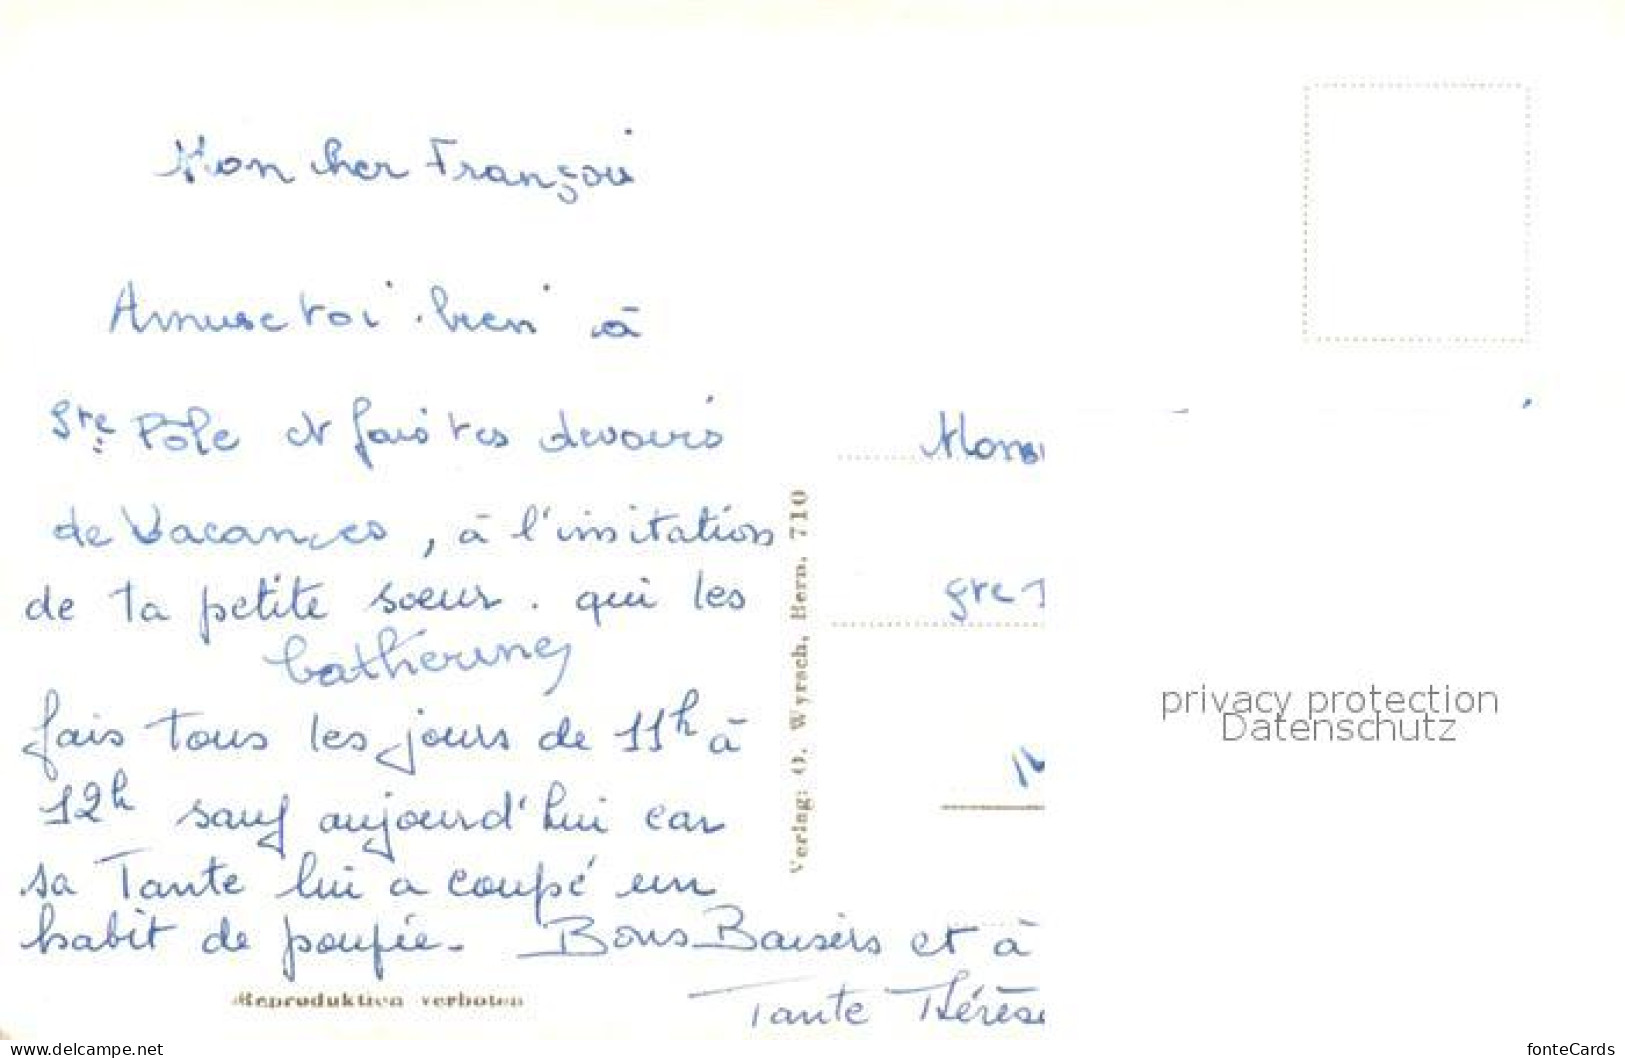 Mon cher François
Amuse toi bien à
Ste Pôle et fais tes devoirs
de Vacances, à l'imitation
de ta petite sœur. qui les
Catherine
fais tous les jours de 11h à
12h sauf aujourd'hui car
sa Tante lui a coupé un
habit de poupée. Bons Baisers et à
Tante Thérèse
Reproduktion verboten
Verlag: O. Wyrsch, Bern. 710
Mons
Ste
privacy protection
Datenschutz
www.delcampe.net
fonteCards